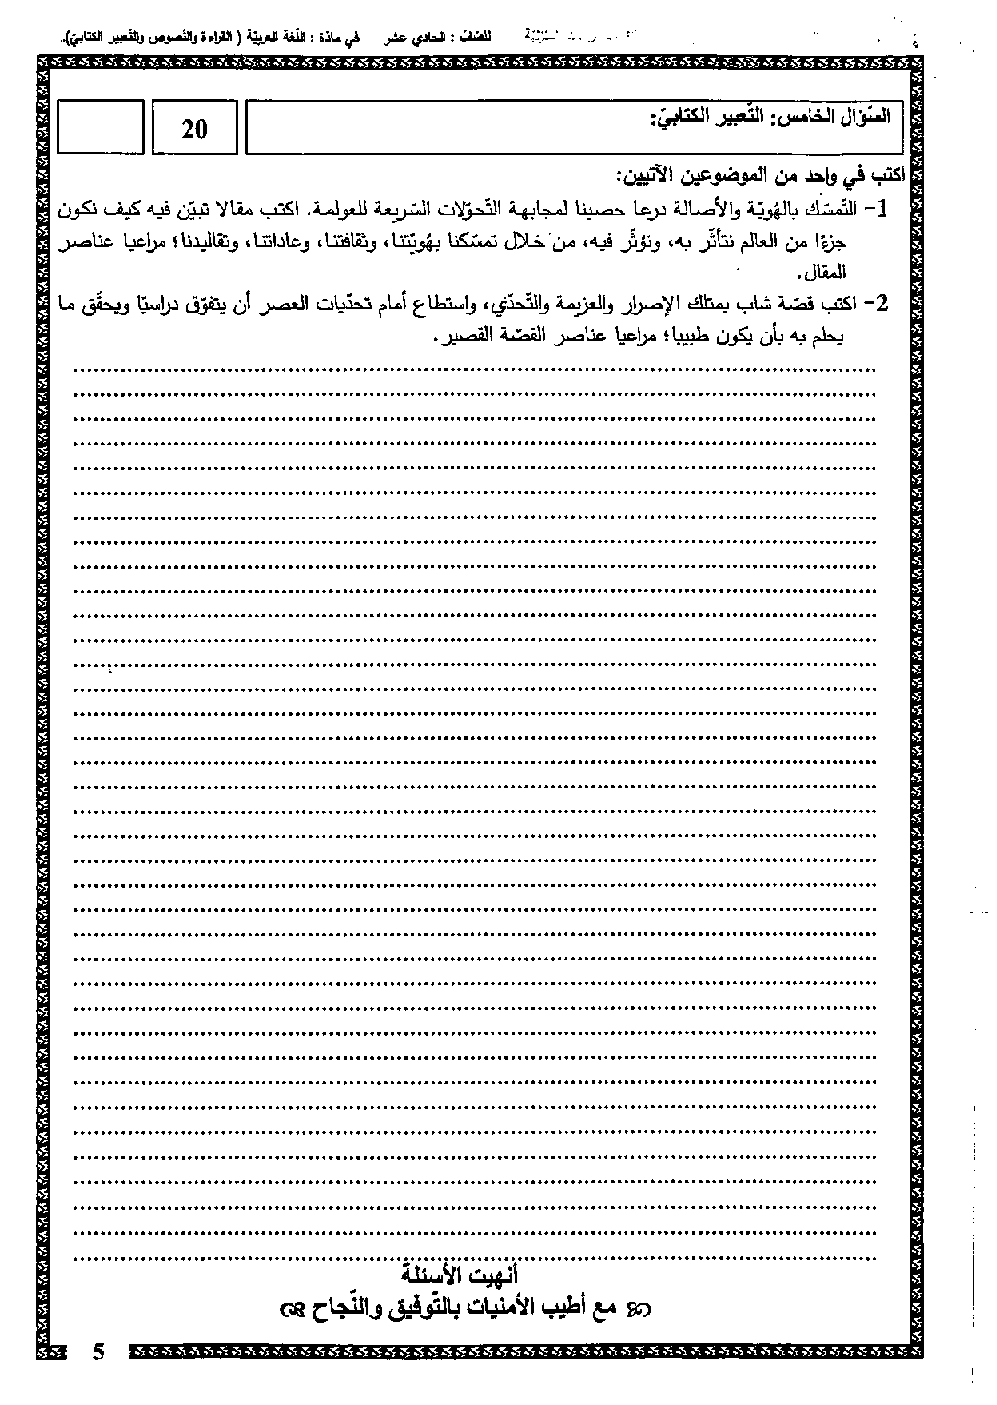 للصف : الحادي عشر في مادّة : اللّغة العربيّة ( القراءة والنّصوص والتّعبير الكتابيّ).
السّؤال الخامس: التّعبير الكتابيّ:
20
اكتب في واحد من الموضوعين الآتيين:
1- التّمسّك بالهُويّة والأصالة درعا حصينا لمجابهة التّحوّلات السّريعة للعولمة. اكتب مقالا تبيّن فيه كيف نكون
جزءًا من العالم نتأثّر به، ونؤثّر فيه، من خلال تمسّكنا بهُويّتنا، وثقافتنا، وعاداتنا، وتقاليدنا؛ مراعيا عناصر
المقال.
2- اكتب قصّة شاب يمتلك الإصرار والعزيمة والتّحدّي، واستطاع أمام تحدّيات العصر أن يتفوّق دراسيّا ويحقّق ما
يحلم به بأن يكون طبيبا؛ مراعيا عناصر القصّة القصير.
أنهيت الأسئلة
مع أطيب الأمنيات بالتّوفيق والنّجاح
5